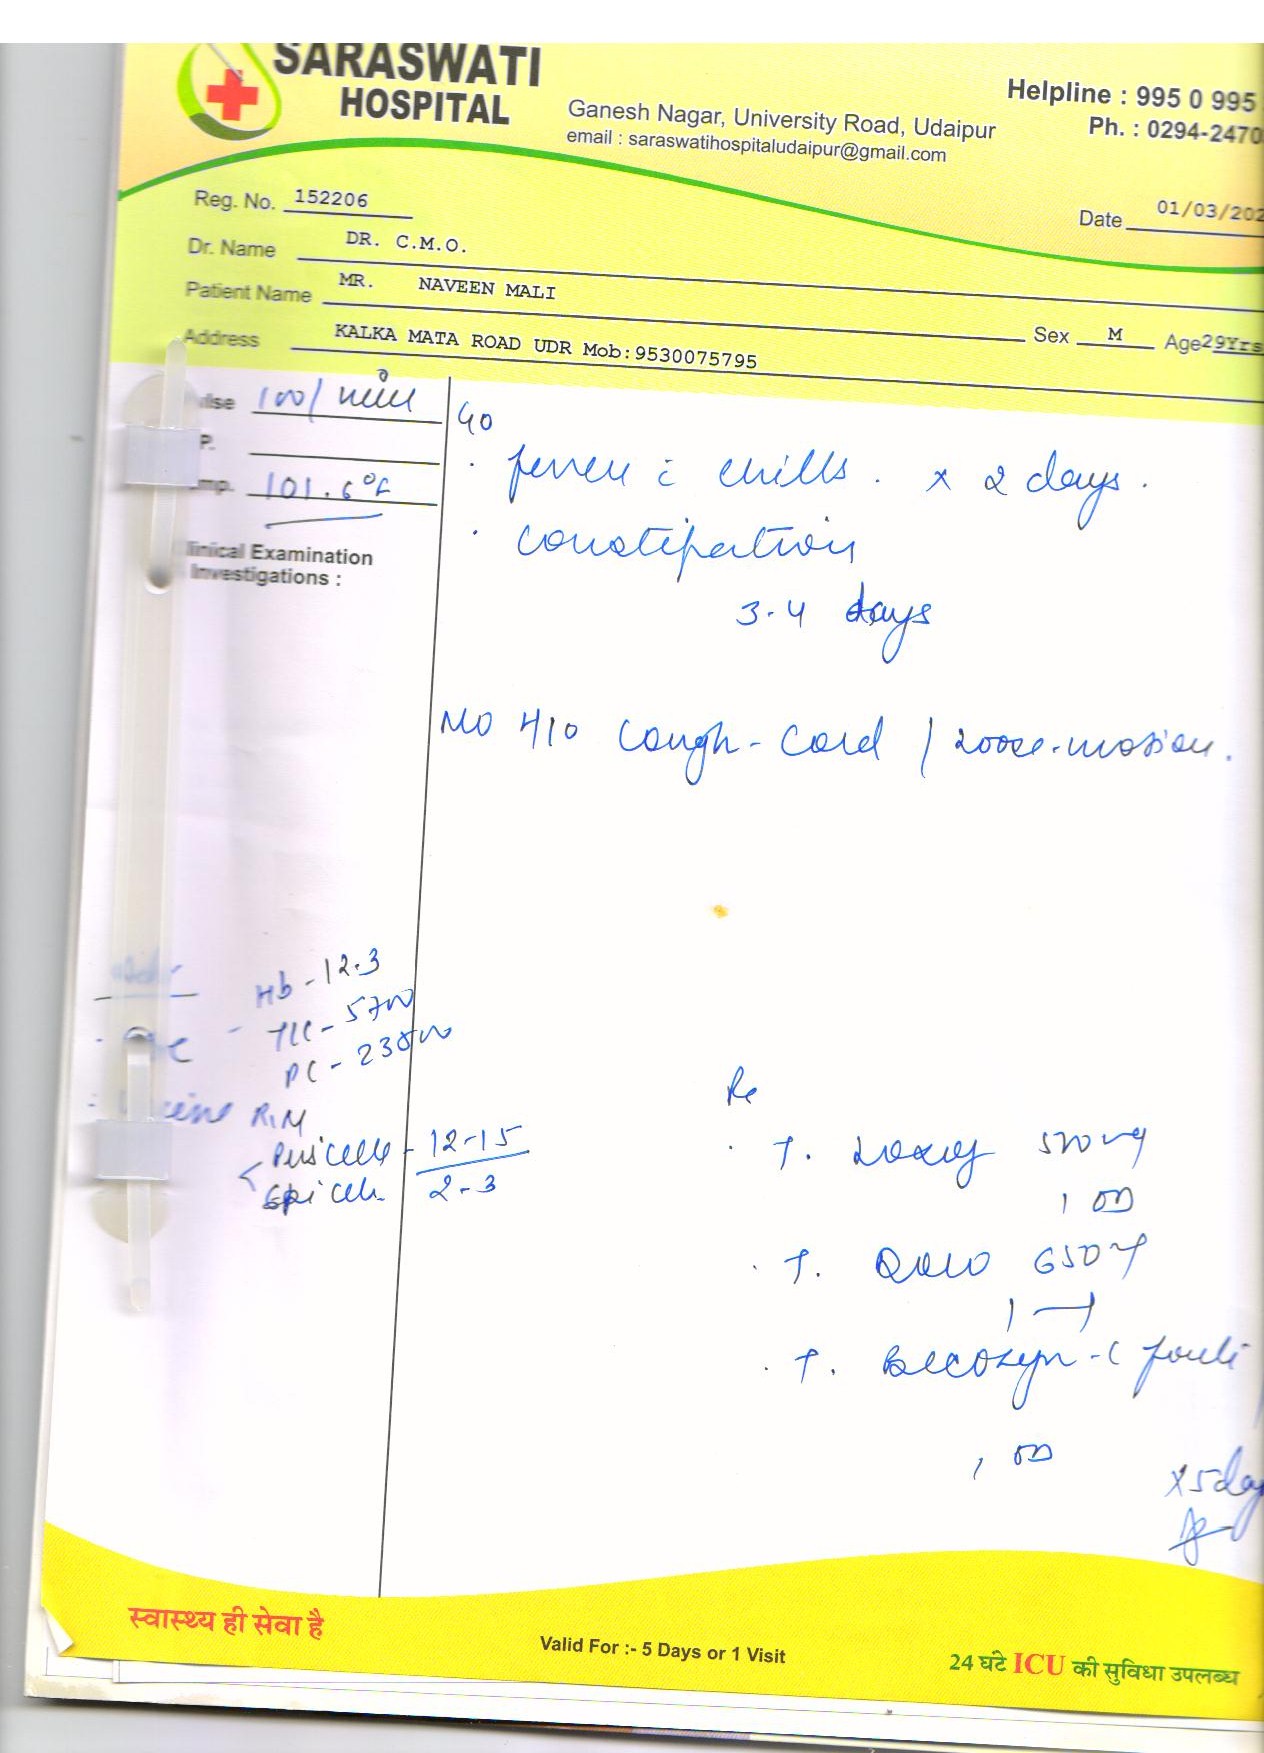 SARASWATI
HOSPITAL
Ganesh Nagar, University Road, Udaipur
email : saraswatihospitaludaipur@gmail.com
Helpline : 995 0 995
Ph. : 0294-2470
Reg. No. 152206
Date 01/03/202
Dr. Name DR. C.M.O.
Patient Name MR. NAVEEN MALI
Sex M Age 29Yrs
Address KALKA MATA ROAD UDR Mob:9530075795
lse 100/min
P.
mp. 101.6°F
linical Examination
Investigations :
C/O
· fever c chills . x 2 days .
· constipation
3-4 days
NO H/O Cough - Cold / Loose-motion .
Hb - 12.3
TLC - 5700
PC - 238000
R/M
Pus cells - 12-15
Epi cells 2-3
Rx
· T. 500 mg
1 OD
· T. Dolo 650
1
· T. Becozyn-C forte
1 OD
x 5 day
स्वास्थ्य ही सेवा है
Valid For :- 5 Days or 1 Visit
24 घंटे ICU की सुविधा उपलब्ध